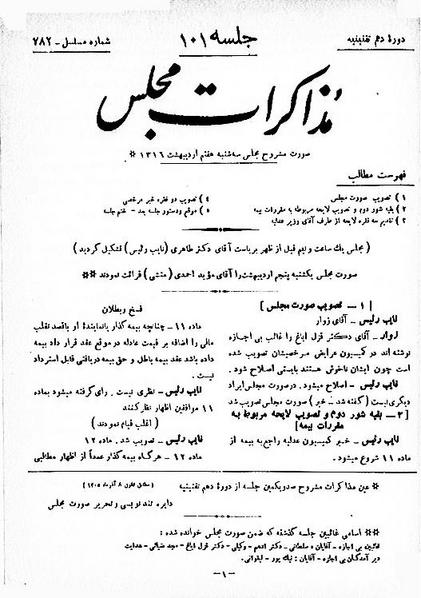 دورهٔ دهم تقنینیه
جلسه ۱۰۱
شماره مسلسل - ۷۸۲
مذاکرات مجلس
صورت مشروح مجلس سه‌شنبه هفتم اردیبهشت ۱۳۱۶ *
فهرست مطالب
۱) تصویب صورت مجلس
۲) بقیه شور دوم و تصویب لایحه مربوطه به مقررات بیمه
۳) تقدیم سه فقره لایحه از طرف آقای وزیر عدلیه
۴) تصویب دو فقره خبر مرخصی
۵) موقع و دستور جلسه بعد - ختم جلسه
(مجلس یك ساعت و نیم قبل از ظهر بریاست آقای دکتر طاهری (نایب رئیس) تشکیل گردید)
صورت مجلس یکشنبه پنجم اردیبهشت را آقای مؤید احمدی (منشی) قرائت نمودند *
[ ۱ - تصویب صورت مجلس ]
نایب رئیس - آقای زوار
زوار - آقای دکتر قزل ایاغ را غالب بی اجازه
نوشته اند در کمیسیون عرایض مرخصیشان تصویب شده
است چون ایشان ناخوش هستند بایستی اصلاح شود.
نایب رئیس - اصلاح میشود. در صورت مجلس ایراد
دیگری نیست (گفته شد - خیر) صورت مجلس تصویب شد
[۲ - بقیه شور دوم و تصویب لایحه مربوط به
مقررات بیمه]
نایب رئیس - خبر کمیسیون عدلیه راجع به بیمه از
ماده ۱۱ شروع میشود.
فسخ و بطلان
ماده ۱۱ - چنانچه بیمه گذار یا نمایندهٔ او باقصد تقلب
مالی را اضافه بر قیمت عادله در موقع عقد قرار داد بیمه
داده باشد عقد بیمه باطل و حق بیمه دریافتی قابل استرداد
نیست.
نایب رئیس - نظری نیست. رای گرفته میشود بماده
۱۱ موافقین اظهار نظر کنند
(اغلب قیام نمودند)
نایب رئیس - تصویب شد. ماده ۱۲
ماده ۱۲ - هر گاه بیمه گذار عمداً از اظهار مطالبی
* عین مذاکرات مشروح صدو یکمین جلسه از دورهٔ دهم تقنینیه
دایره تندنویسی و تحریر صورت مجلس
** اسامی غائبین جلسه گذشته که ضمن صورت مجلس خوانده شده:
غائبین بی اجازه - آقایان: سلطانی - دکتر ادهم - وکیلی - دکتر قزل ایاغ - هدایت
دیر آمدگان بی اجازه - آقایان: نیك پور - لیقوانی.
- ۱ -